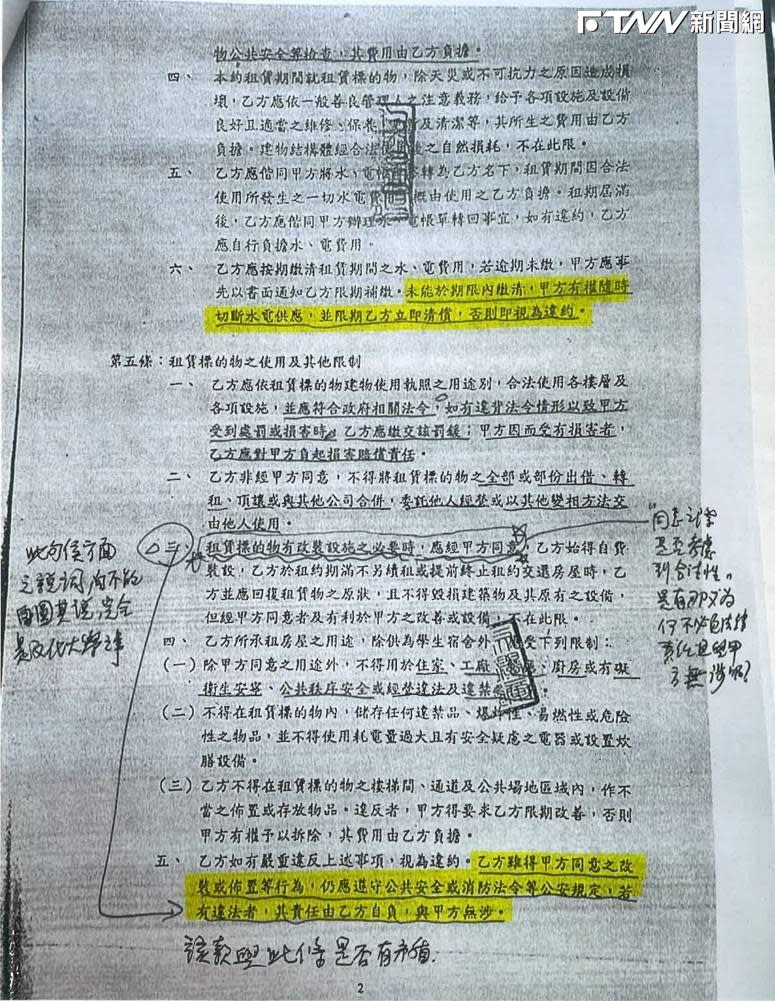 FTNN 新聞網
物公共安全等檢查,其費用由乙方負擔。
四、 本約租賃期間就租賃標的物,除天災或不可抗力之原因造成損
壞,乙方應依一般善良管理人之注意義務,給予各項設施及設備
良好且適當之維修、保養、 及清潔等,其所生之費用由乙方
負擔。建物結構體經合法使用後之自然損耗,不在此限。
五、 乙方應偕同甲方將水、電帳 轉為乙方名下,租賃期間因合法
使用所發生之一切水電費 概由使用之乙方負擔。租期屆滿
後,乙方應偕同甲方辦理 電帳單轉回事宜,如有違約,乙方
應自行負擔水、電費用。
六、 乙方應按期繳清租賃期間之水、電費用,若逾期未繳,甲方應事
先以書面通知乙方限期補繳。未能於期限內繳清,甲方有權隨時
切斷水電供應,並限期乙方立即清償,否則即視為違約。
第五條:租賃標的物之使用及其他限制
一、 乙方應依租賃標的物建物使用執照之用途別,合法使用各樓層及
各項設施,並應符合政府相關法令,如有違背法令情形以致甲方
受到處罰或損害時,乙方應繳交該罰鍰;甲方因而受有損害者,
乙方應對甲方負起損害賠償責任。
二、 乙方非經甲方同意,不得將租賃標的物之全部或部份出借、轉
租、頂讓或與其他公司合併,委託他人經營或以其他變相方法交
由他人使用。
三 租賃標的物有改裝設施之必要時,應經甲方同意,乙方始得自費
裝設,乙方於租約期滿不另續租或提前終止租約交還房屋時,乙
方並應回復租賃物之原狀,且不得毀損建築物及其原有之設備,
但經甲方同意者及有利於甲方之改善或設備, 不在此限。
四、 乙方所承租房屋之用途,除供為學生宿舍外, 受下列限制:
(一)除甲方同意之用途外,不得用於住家、工廠 、廚房或有礙
衛生安寧、公共秩序安全或經營違法及違禁
(二)不得在租賃標的物內,儲存任何違禁品、爆炸性、易燃性或危險
性之物品,並不得使用耗電量過大且有安全疑慮之電器或設置炊
膳設備。
(三)乙方不得在租賃標的物之樓梯間、通道及公共場地區域內,作不
當之佈置或存放物品。違反者,甲方得要求乙方限期改善,否則
甲方有權予以拆除,其費用由乙方負擔。
五、 乙方如有嚴重違反上述事項,視為違約。乙方雖得甲方同意之改
裝或佈置等行為,仍應遵守公共安全或消防法令等公安規定,若
有違法者,其責任由乙方自負,與甲方無涉。
該款與此條是否有矛盾
是否考慮
到合法性。
2